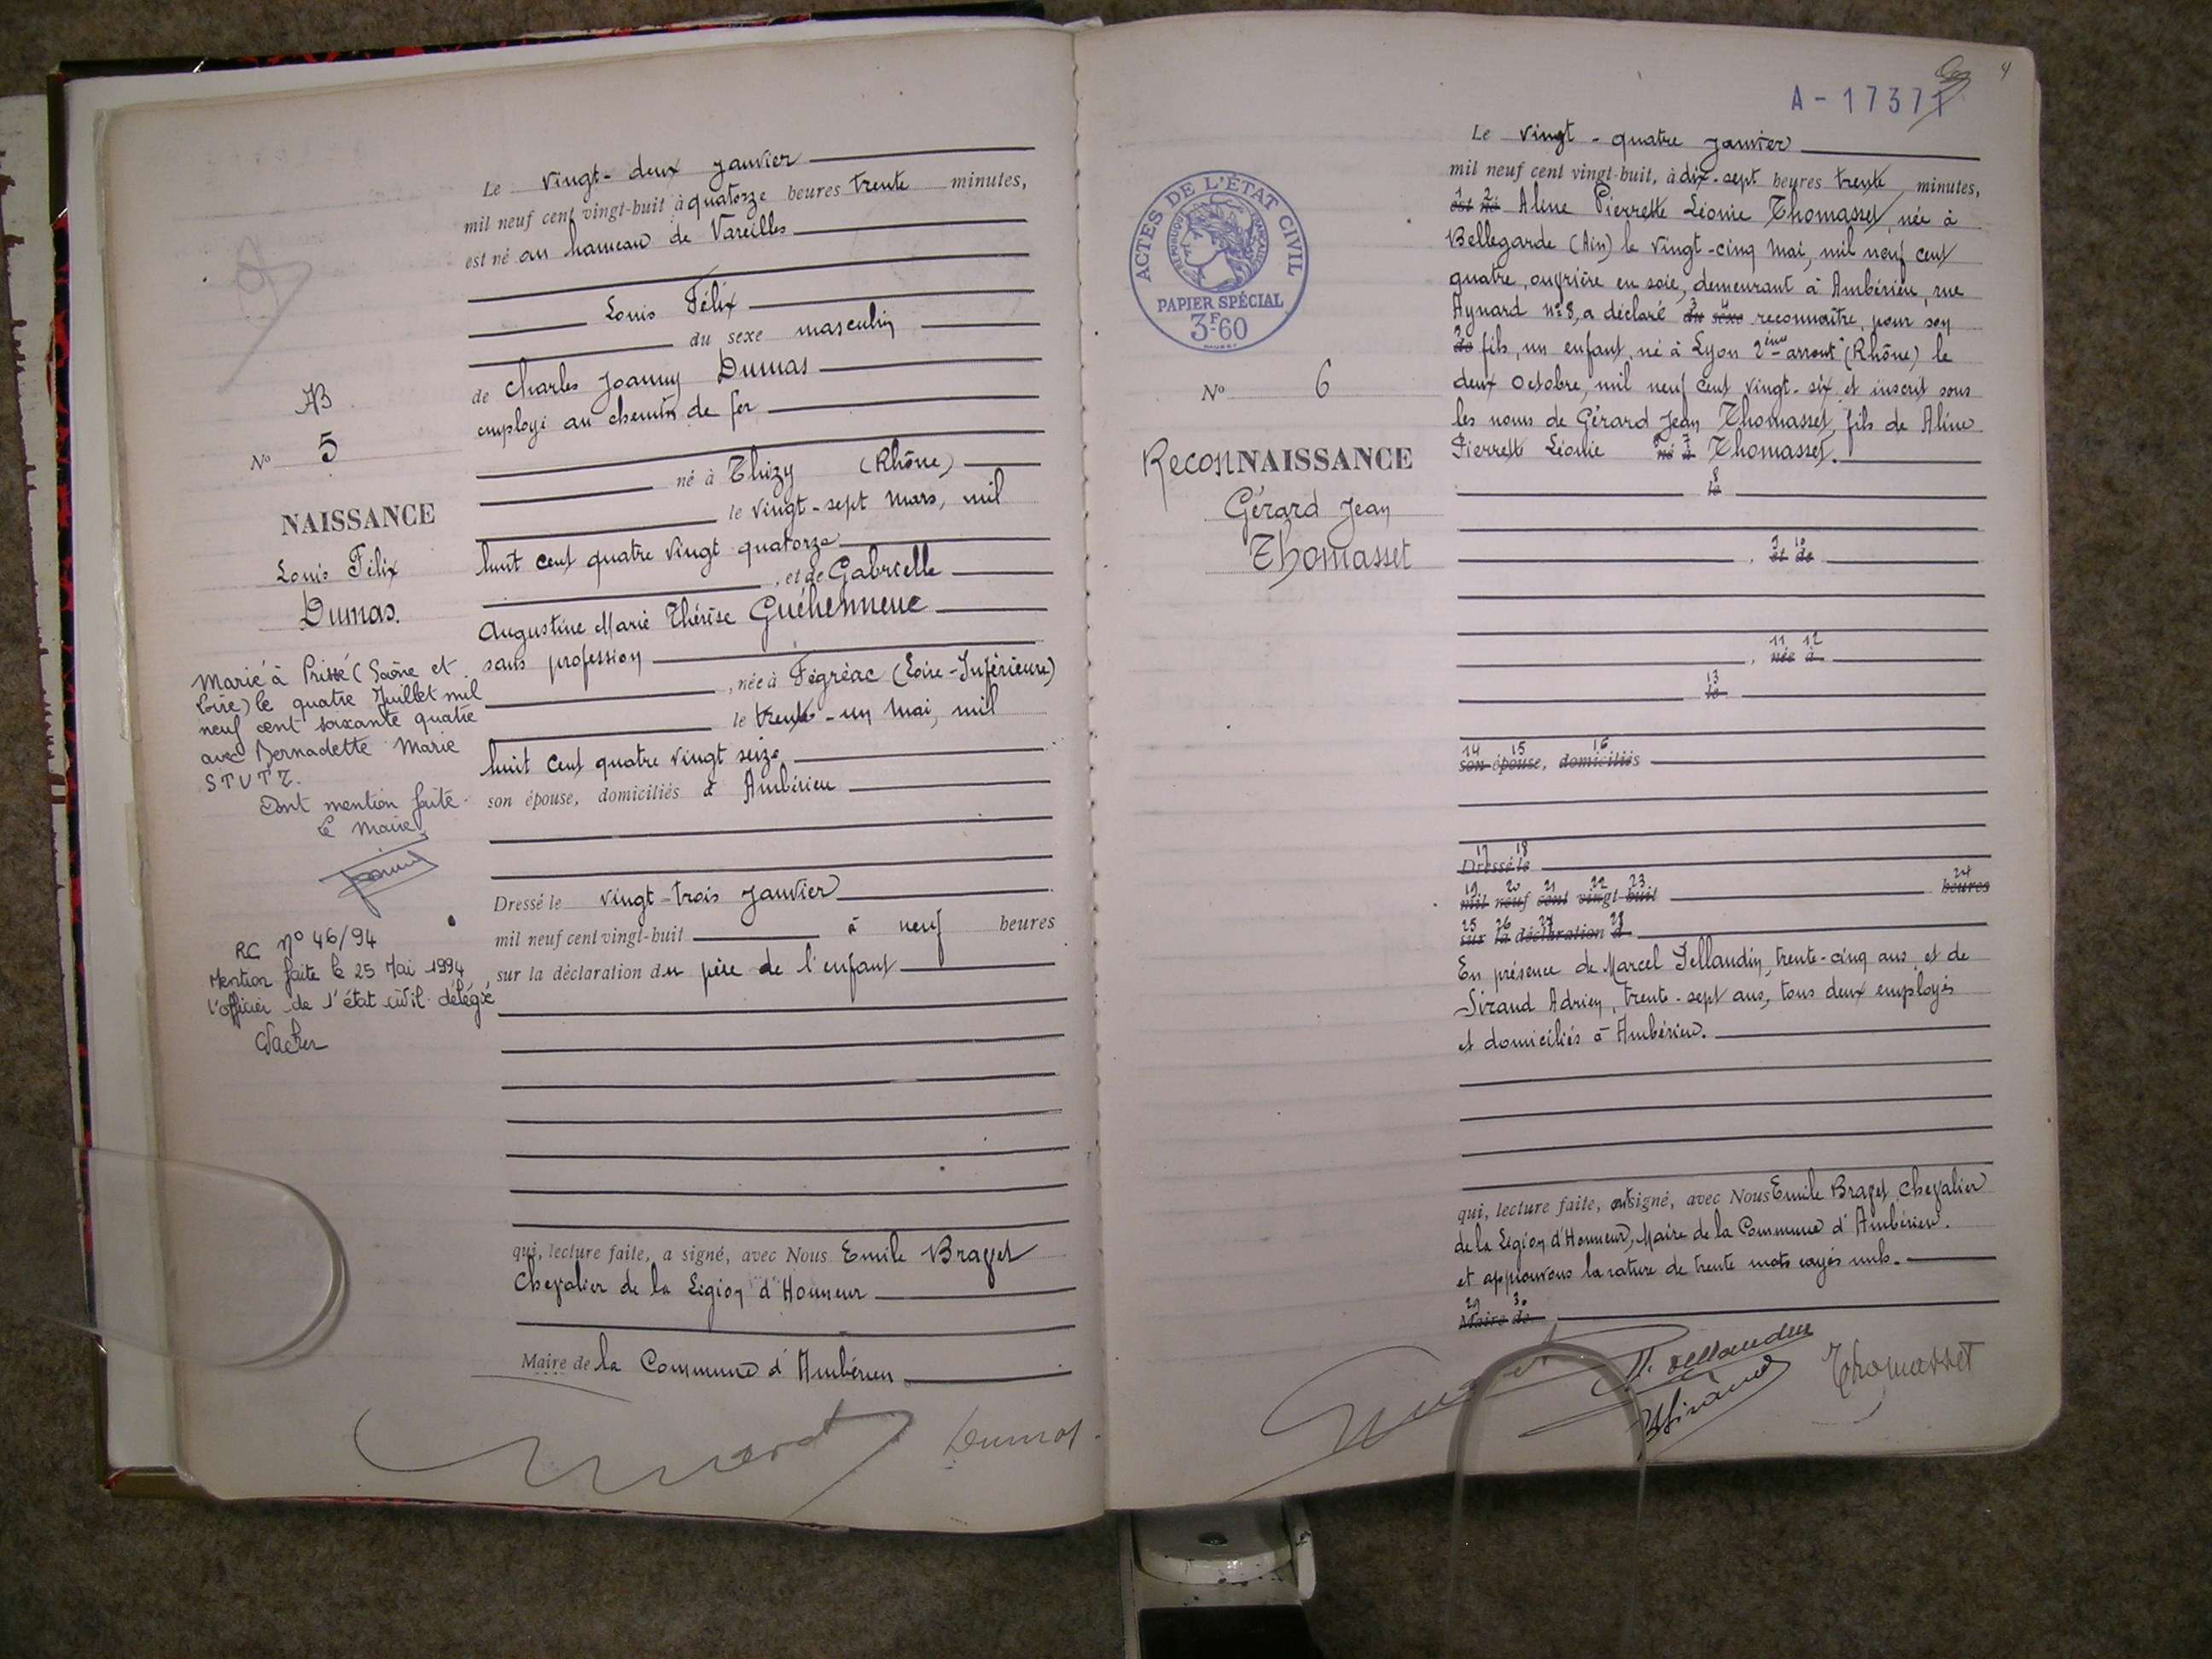 AB
N° 5
NAISSANCE
Louis Félix
Dumas.
Marié à Prissé (Saône et
Loire) le quatre Juillet mil
neuf cent soixante quatre
avec Bernadette Marie
STUTZ.
Dont mention faite.
Le Maire
RC N° 46/94
Mention faite le 25 Mai 1994
l'officier de l'état civil délégué
Le vingt-deux janvier
mil neuf cent vingt-huit à quatorze heures trente minutes,
est né au hameau de Vareilles
Louis Félix
du sexe masculin
de Charles Joanny Dumas
employé au chemin de fer
né à Thizy (Rhône)
le vingt-sept mars, mil
huit cent quatre vingt quatorze
, et de Gabrielle
Augustine Marie Thérèse Guéhenneuc
sans profession
, née à Fégréac (Loire-Inférieure)
le trente-un mai, mil
huit cent quatre vingt seize
son épouse, domiciliés à Ambérieu
Dressé le vingt-trois janvier
mil neuf cent vingt-huit à neuf heures
sur la déclaration du père de l'enfant
qui, lecture faite, a signé, avec Nous Emile Braget
Chevalier de la Légion d'Honneur
Maire de la Commune d'Ambérieu
Dumas
4
A-17371
ACTES DE L'ÉTAT CIVIL
RÉPUBLIQUE FRANÇAISE
PAPIER SPÉCIAL
3F.60
N° 6
ReconNAISSANCE
Gérard Jean
Thomasset
Le vingt-quatre janvier
mil neuf cent vingt-huit, à dix-sept heures trente minutes,
1 2
est né Aline Pierrette Léonie Thomasset, née à
Bellegarde (Ain) le vingt-cinq mai, mil neuf cent
quatre, ouvrière en soie, demeurant à Ambérieu, rue
Aynard n° 8, a déclaré du sexe reconnaître, pour son
de fils, un enfant, né à Lyon 2ème arront (Rhône) le
deux Octobre, mil neuf cent vingt-six et inscrit sous
les noms de Gérard Jean Thomasset, fils de Aline
Pierrette Léonie né à Thomasset.
8
le
9 10
, et de
11 12
, née à
13
le
14 15 16
son épouse, domiciliés
17 18
Dressé le
19 20 21 22 23 24
mil neuf cent vingt-huit heures
25 26 27 28
sur la déclaration d
En présence de Marcel Sellaudin, trente-cinq ans, et de
Siraud Adrien, trente-sept ans, tous deux employés
et domiciliés à Ambérieu.
qui, lecture faite, ont signé, avec Nous Emile Braget, Chevalier
de la Légion d'Honneur, Maire de la Commune d'Ambérieu.
et approuvons la rature de trente mots rayés nuls.
29 30
Maire de
Thomasset